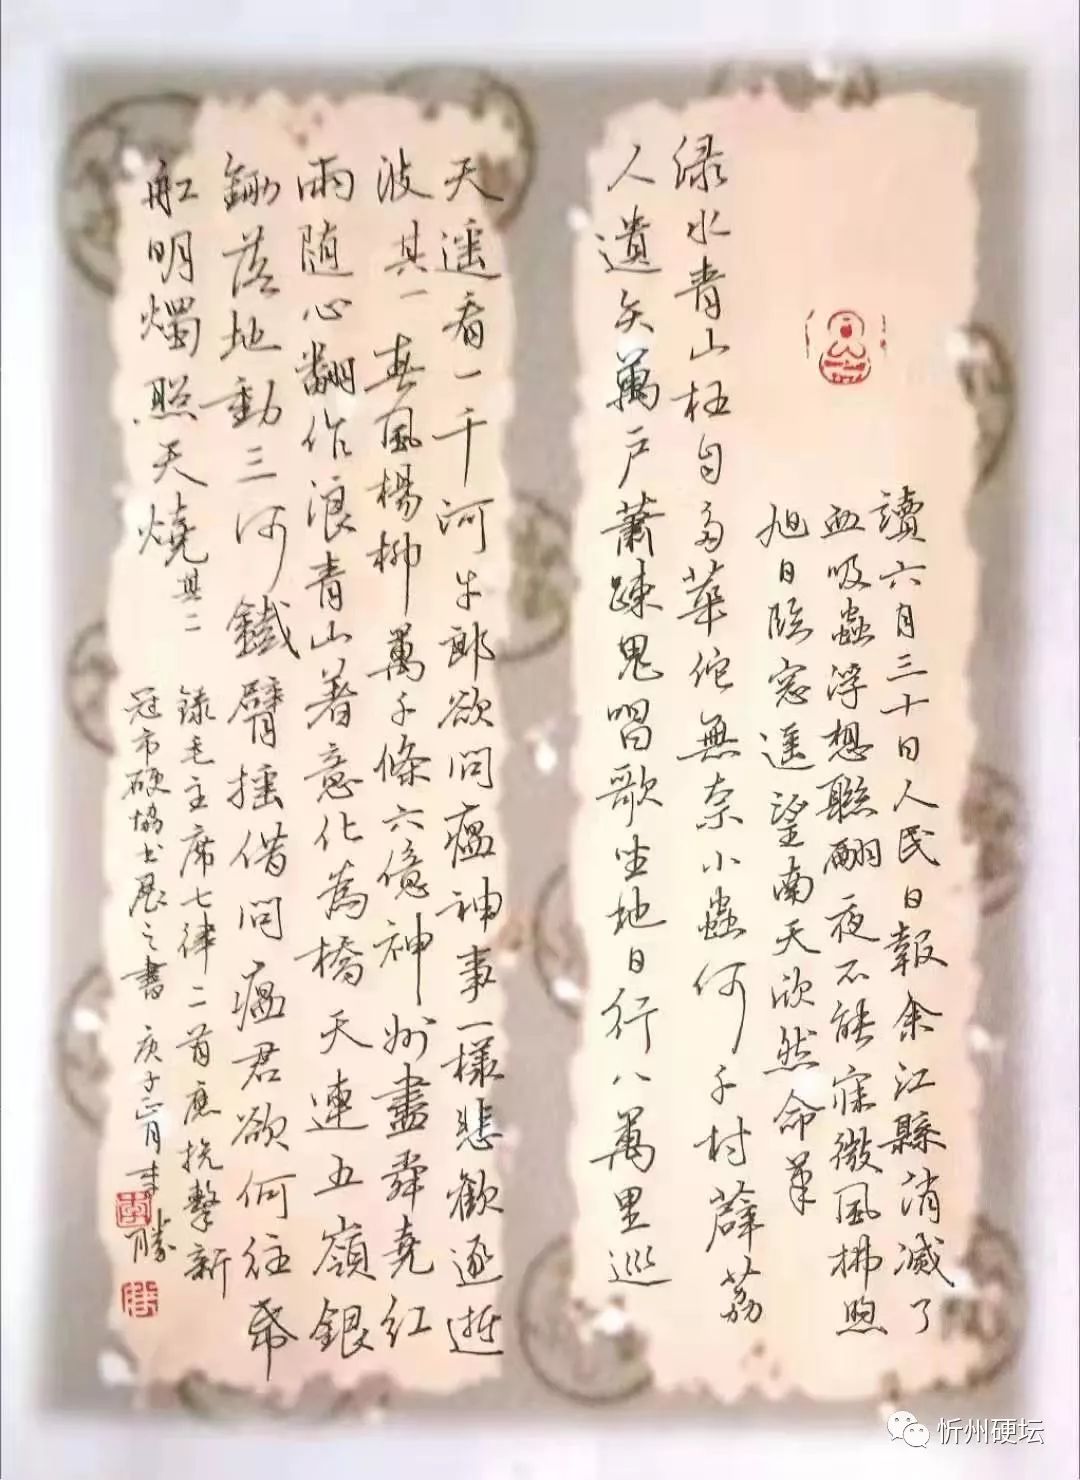 讀六月三十日人民日報余江縣消滅了
血吸蟲浮想聯翩夜不能寐微風拂煦
旭日臨窓遥望南天欣然命筆
绿水青山枉自多華佗無奈小蟲何千村薜荔
人遺矢萬户蕭疎鬼唱歌坐地日行八萬里巡
天遥看一千河牛郎欲問瘟神事一樣悲歡逐逝
波其一春風楊柳萬千條六億神州盡舜堯红
雨随心翻作浪青山著意化為橋天連五嶺銀
鋤落地動三河鐵臂摇借問瘟君欲何往帋
船明燭照天燒其二
錄毛主席七律二首應抗擊新
冠市硬協書展之書庚子正月李勝
忻州硬坛